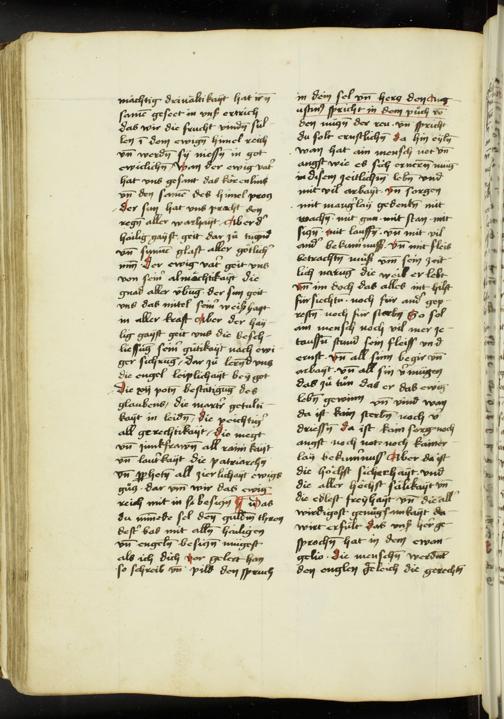 mächtig drivaltikayt hat irn
samē geseet in vnß ertrich
das wir die frucht vindn sül
len ī dem ewign himel reich
vn̄ werdn sy messen in got
ewiclichn Wan der ewig vat
hat vns gesant das korn
vn̄ den samē des himel procz
der sun hat vns pracht den
regn aller warhayt Aber d
hailig gayst geit dar zu tugend
vn̄ sunne glast aller götlich
min Der ewig vat geit vns
von sein almächtikayt die
gnad aller übung der sun geit
vns das mitel sein weißhayt
in aller kraft Aber der hay
lig gayst geit vns die besch
liessūg seinr gütikayt nach ewi
ger sichrug
die engel leiplichayt bey got
Die xij potn bestätigūg des
glaubens die martr gedulti
kayt in leidn die peichtiger
all gerechtikayt die megt
vn̄ junkfrawn all rainikayt
vn̄ laurkayt die patriarchn
vn̄ prophetn all zierlichayt ewigs
gūcz dar vm̄ wir das ewig
reich mit in so besiczn
du minnede sel den guldin thron
dest bas mit alln hailigen
vn̄ engeln besiczn mügest
als ich dich vor gelert han
so schreib vn̄ pild den spruch
in dem sel vn̄ hercz den Aug
ustinus spricht in dem pūch vo
den  der rew vn̄ spricht
du solt ernstlichn da hin eyln
wan hat ain mensch not vn̄
angst wie es sich ernern mug
in disem zeitlichn lebn vnd
mit vil arbayt vn̄ sorgen
mit manglay gedenkn mit
wachn mit gan mit stan mit
siczn mit lauffn vn̄ mit vil
andr bekumrnuß vn̄ mit fleis
betrachtn muß vm̄ sein zeit
lich narūg die weil er lebt
vn̄ im doch das alles nit hilft
für siechtū noch für  gep
restn noch für sterbn So sol
ain mensch noch vil mer ze
tausent stund sein fleiß vnd
ernst vn̄ all sinn begir vn̄
arbayt vn̄ all sin vmūgen
das zu tun das er das ewig
lebn gewinn vn̄ vind wan
da ist kain sterbn noch v
driessn da ist kain sorg noch
angst noch not noch kainer
lay bekumrnuß Aber da ist
die höchst sicherhayt vnd
die aller höchst sälikayt vn̄
die edlest freyhayt vn̄ die all
wirdigost genūgsamkayt da
wirt erfült das vnß herr ge
sprochn hat in dem ewan
gelio die menschn werdnt
den englen geleich die gerechtn